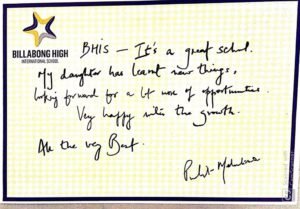 BILLABONG HIGH
INTERNATIONAL SCHOOL
BHIS – It's a great school.
My daughter has learnt new things,
looking forward for a lot more of opportunities.
Very happy with the growth.
All the very Best.